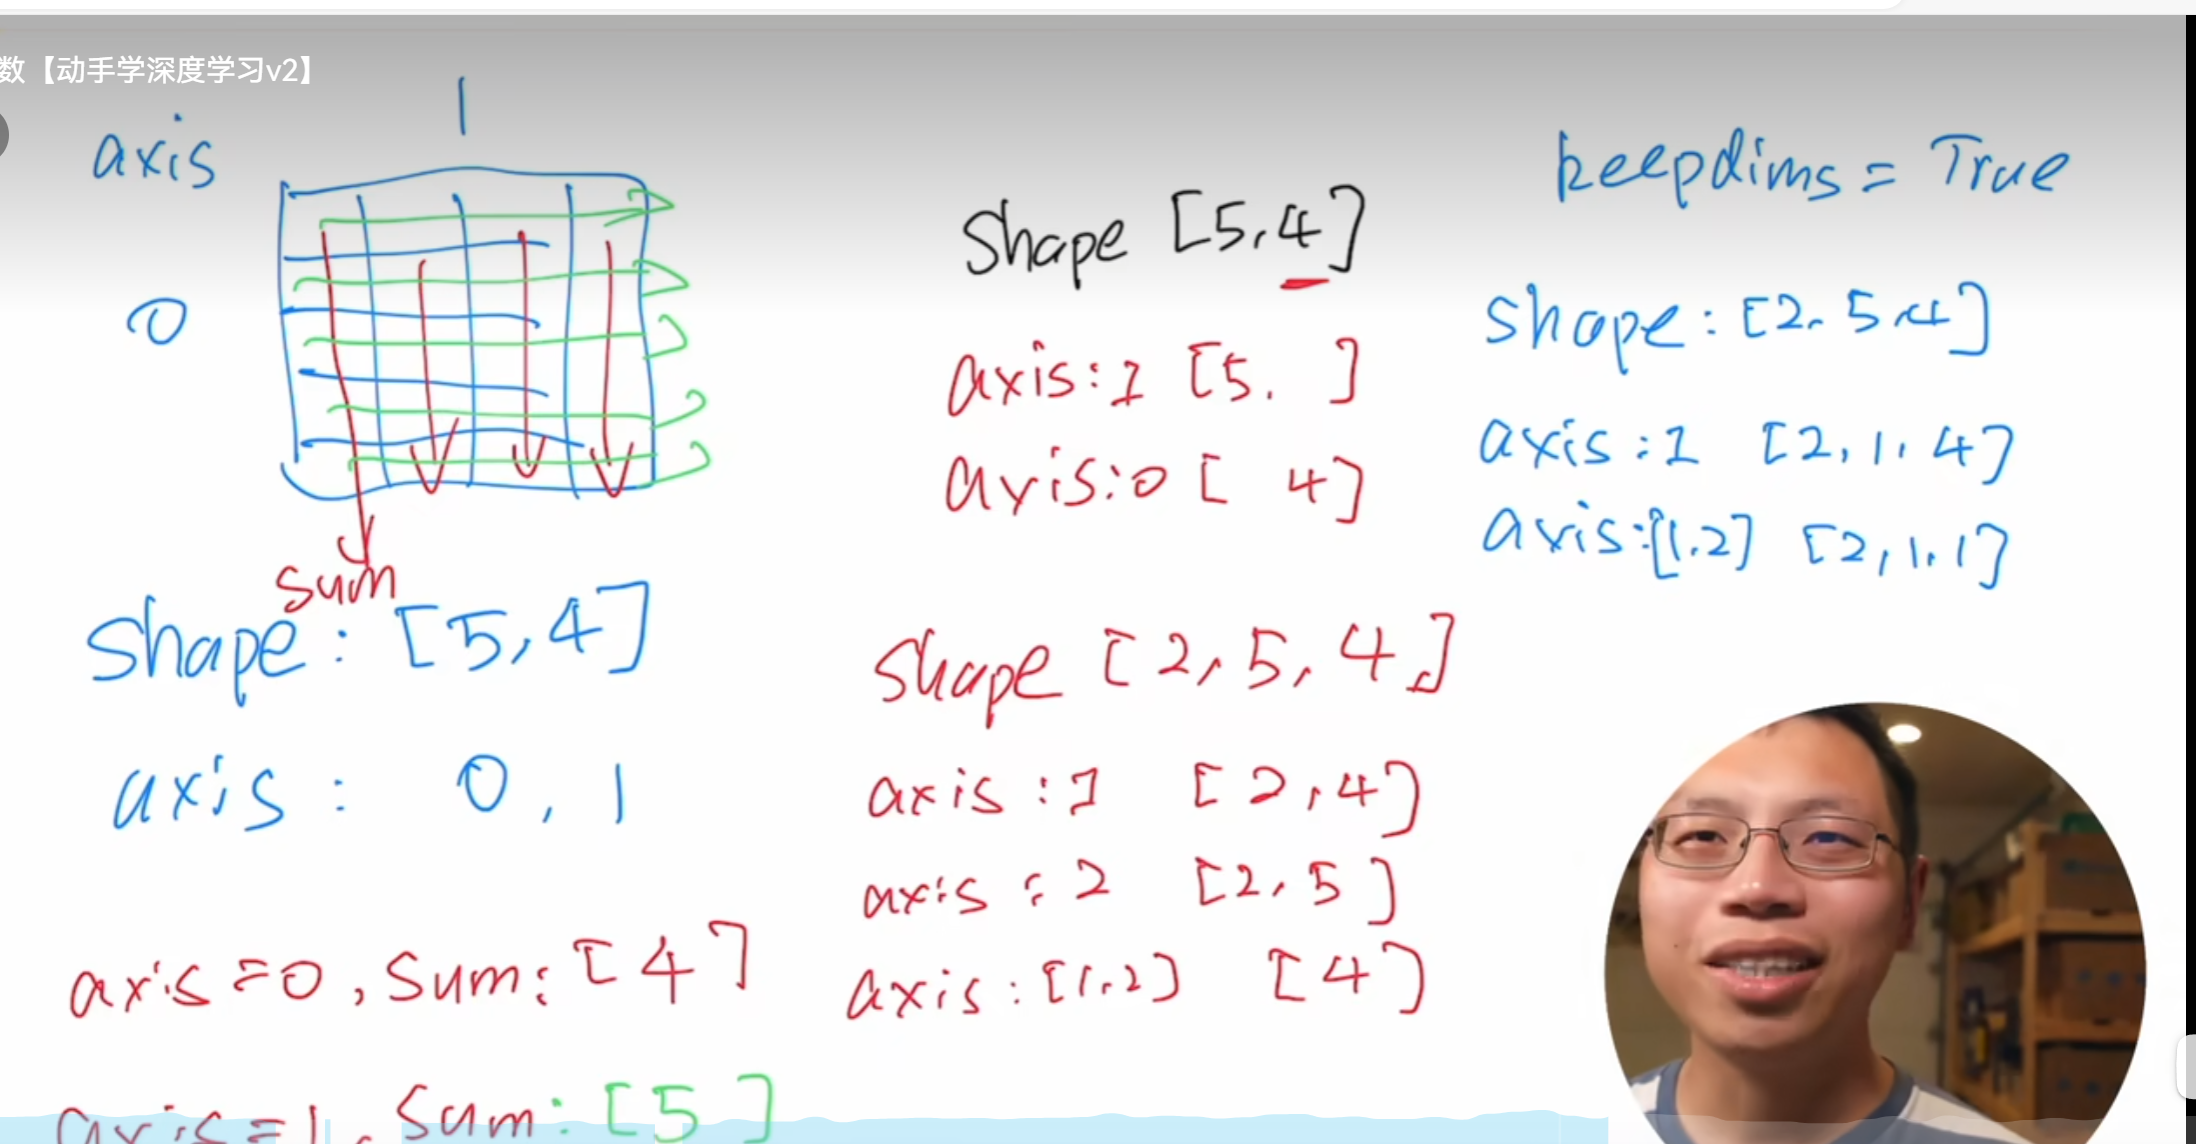 数【动手学深度学习v2】
axis
1
0
sum
shape: [5,4]
axis: 0, 1
axis=0, sum: [4]
axis=1, sum: [5]
shape [5,4]
axis:1 [5. ]
axis:0 [ 4]
shape [2,5,4]
axis:1 [2,4]
axis:2 [2,5]
axis:[1.2] [4]
keepdims=True
shape: [2.5.4]
axis:1 [2,1,4]
axis:[1.2] [2,1,1]